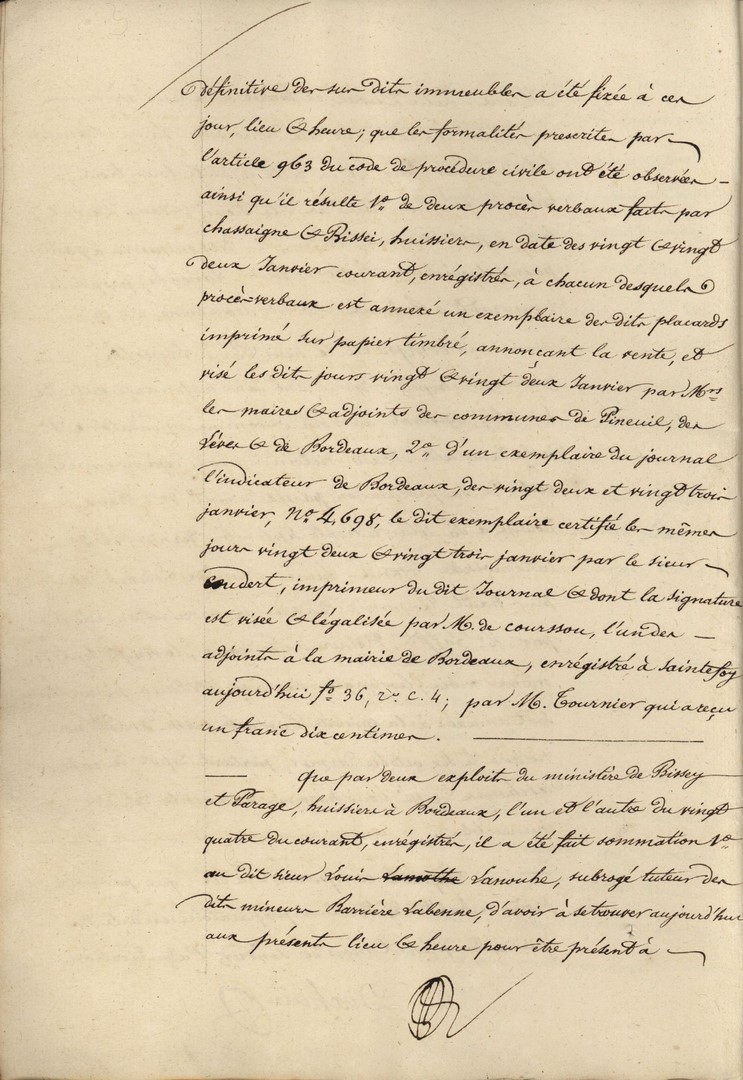 définitive des sus dits immeubles a été fixée à ces
jour, lieu & heure; que les formalités prescrites par
l'article 963 du code de procédure civile ont été observées
ainsi qu'il résulte 1o. de deux procès verbaux faits par
chassaigne & Bissei, huissiers, en date des vingt & vingt
deux Janvier courant, enrégistrés, à chacun desquels
procès-verbaux est annexé un exemplaire des dits placards
imprimé sur papier timbré, annonçant la vente, et
visé les dits jours vingt & vingt deux Janvier par Mrs
les maires & adjoints des communes de Pineuil, des
Lèves & de Bordeaux, 2o. d'un exemplaire du journal
l'indicateur de Bordeaux, des vingt deux et vingt trois
janvier, No. 4,698, le dit exemplaire certifié les mêmes
jours vingt deux & vingt trois janvier par le sieur
coudert, imprimeur du dit Journal & dont la signature
est visée & légalisée par M. de courssou, l'un des
adjoints à la mairie de Bordeaux, enrégistré à Saintefoy
aujourd'hui fo. 36, ro. c. 4; par M. Tournier qui a reçu
un franc dix centimes.
que par deux exploits du ministère de Bissey
et Parage, huissiers à Bordeaux, l'un et l'autre du vingt
quatre du courant, enrégistrés, il a été fait sommation 1o.
au dit sieur Louis Lamothe Lanouhe, subrogé tuteur des
dits mineurs Barrière Labenne, d'avoir à se trouver aujourd'hui
aux présents lieu & heure pour être présent à